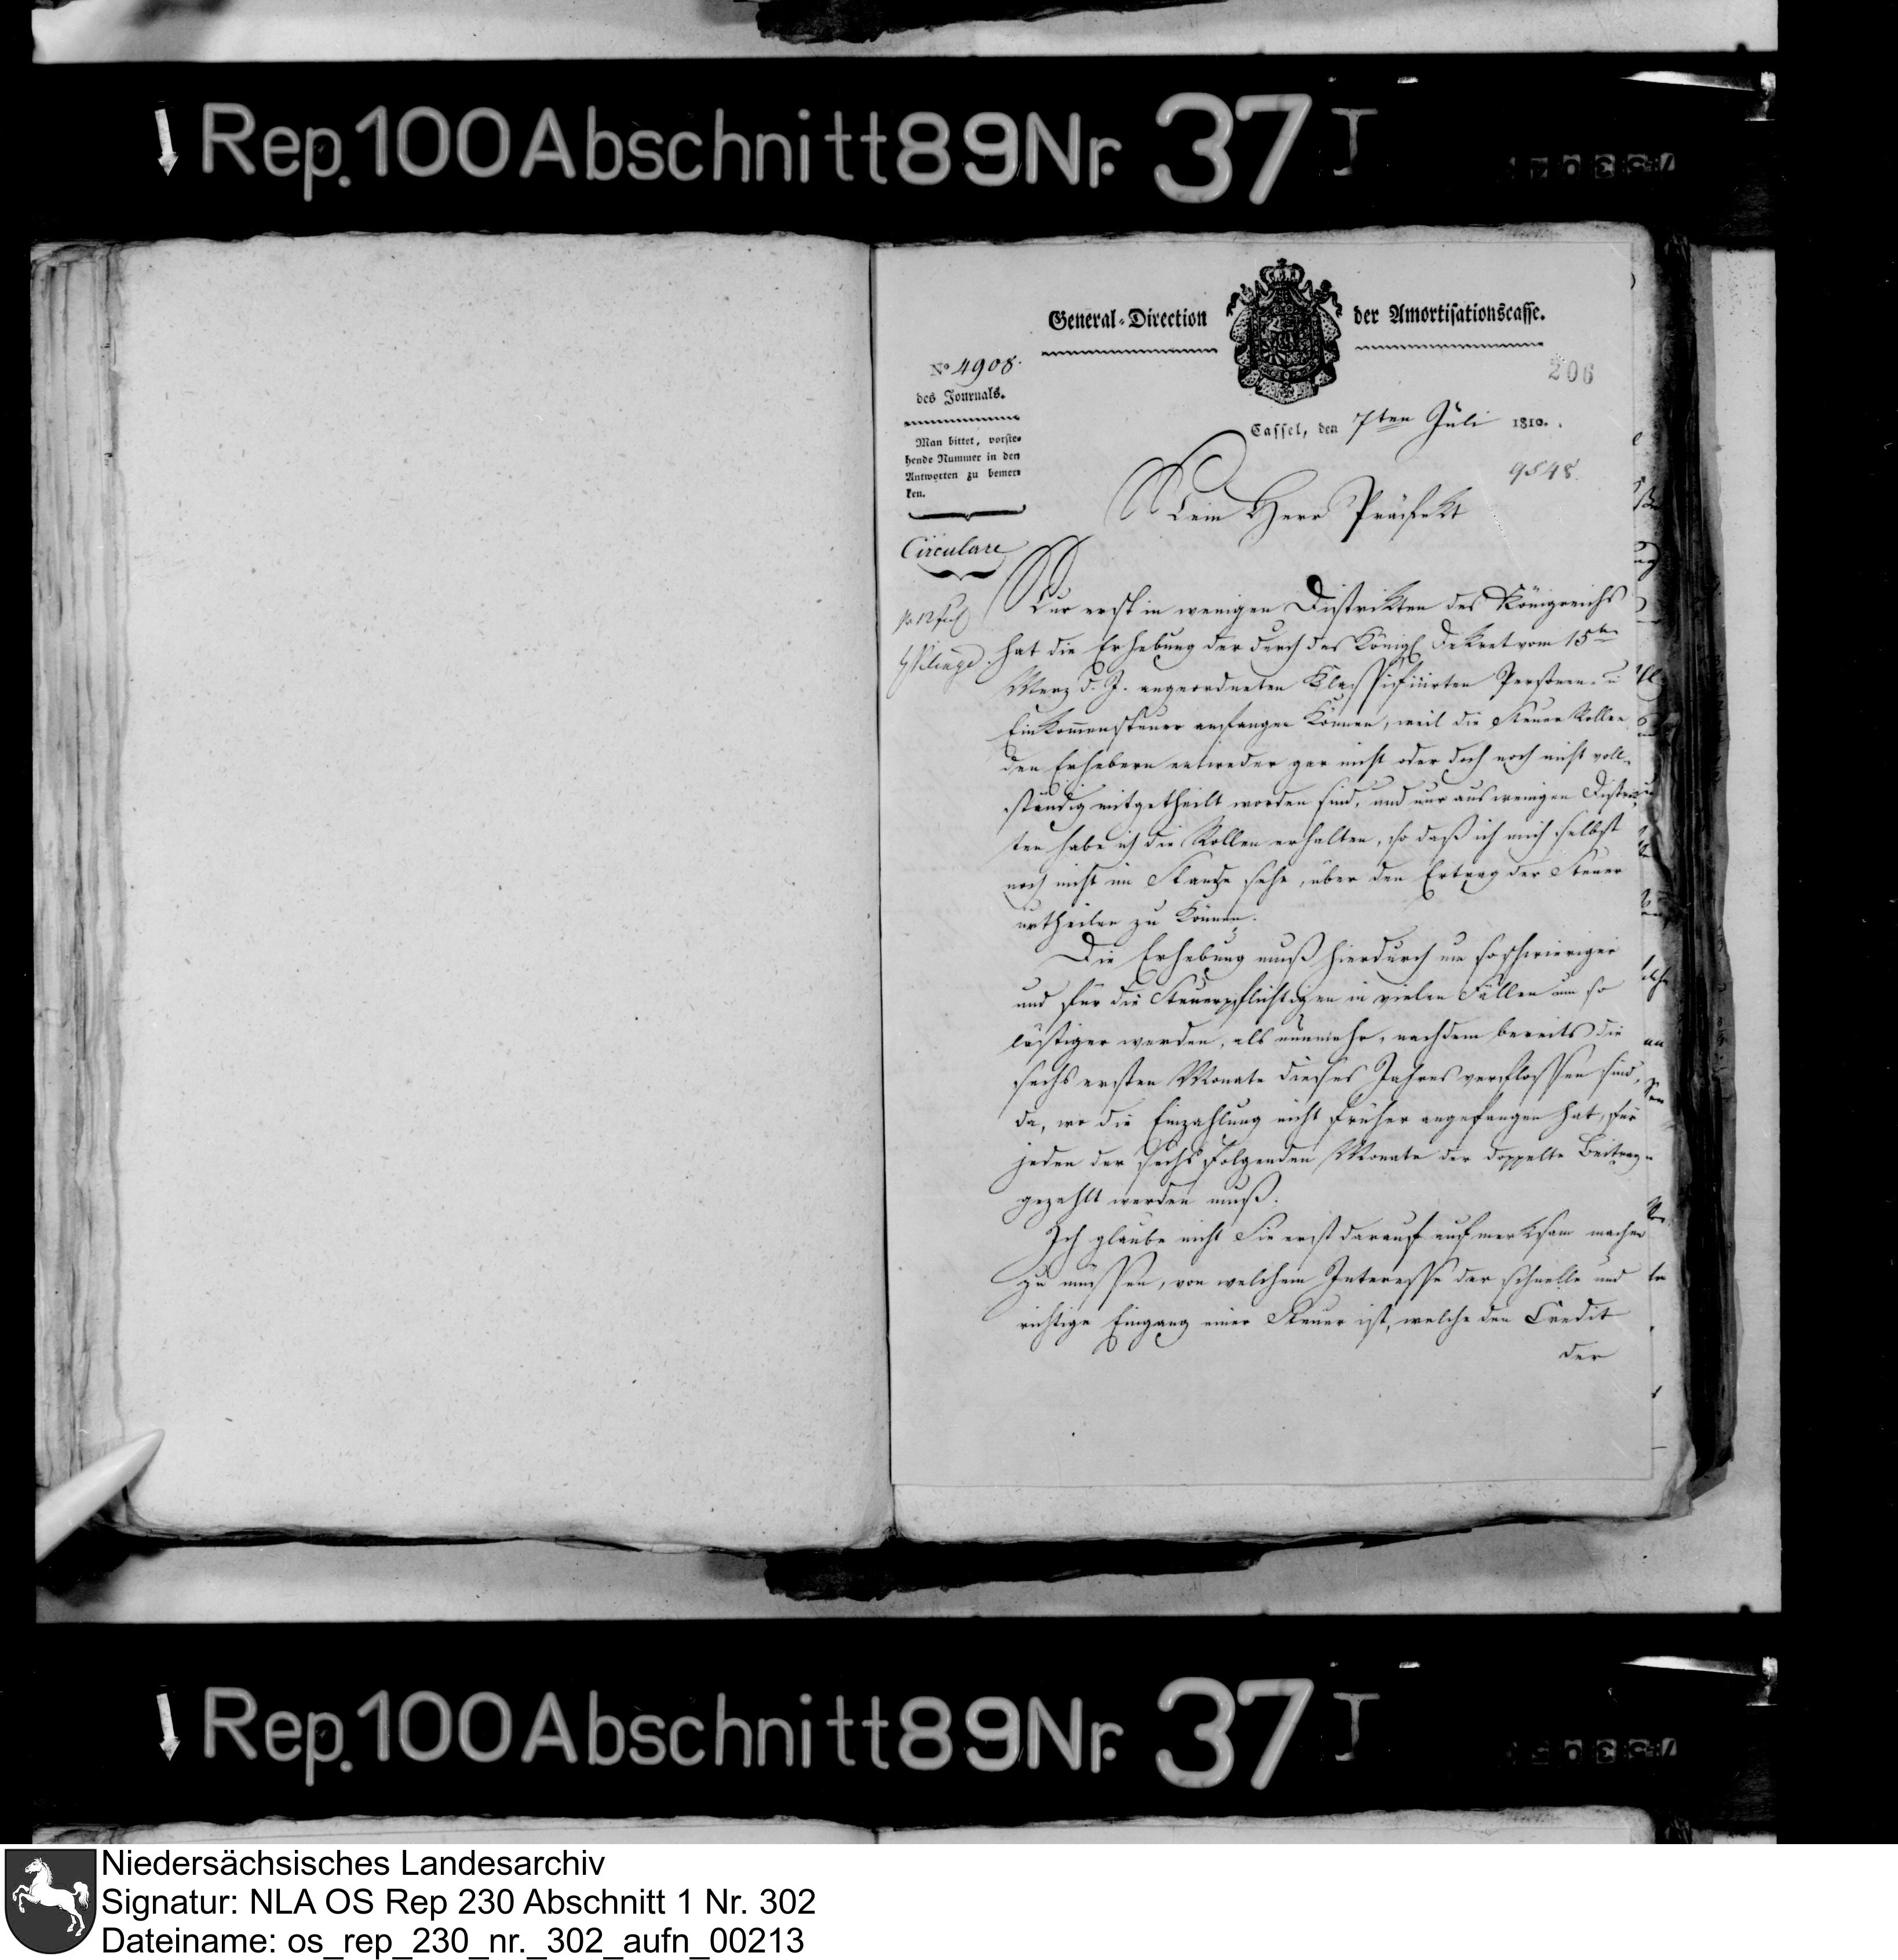 Rep. 100 Abschnitt 89 Nr. 37 I
General-Direction der Amortisationscasse.
206
No 4908.
des Journals.
Man bittet, vorste-
hende Nummer in den
Antworten zu bemer-
ken.
Cassel, den 7ten Juli 1810.
9548.
Mein Herr Präfekt
Circulare
Nur erst in wenigen Distrikten des Königreichs
hat die Erhebung der durch das Königl Dekret vom 15ten
Merz d. J. angeordneten Klassifizirten Personen- u
Einkommensteuer anfangen können, weil die Steuer Rollen
den Erhebern entweder gar nicht oder doch noch nicht voll-
ständig mitgetheilt worden sind, und nur aus wenigen Distrik-
ten habe ich die Rollen erhalten, so daß ich mich selbst
noch nicht im Stande sehe, über den Ertrag der Steuer
urtheilen zu können.
Die Erhebung muß hierdurch um so schwieriger
und für die Steuerpflichtigen in vielen Fällen um so
lästiger werden, als nunmehr, nachdem bereits die
sechs ersten Monate dieses Jahres verflossen sind,
da, wo die Einzahlung nicht früher angefangen hat, für
jeden der sechs folgenden Monate der doppelte Beitrag
gezahlt werden muß.
Ich glaube nicht Sie erst darauf aufmerksam machen
zu müssen, von welchem Interesse der schnelle und
richtige Eingang einer Steuer ist, welche den Credit
der
Rep. 100 Abschnitt 89 Nr. 37 I
Niedersächsisches Landesarchiv
Signatur: NLA OS Rep 230 Abschnitt 1 Nr. 302
Dateiname: os_rep_230_nr._302_aufn_00213